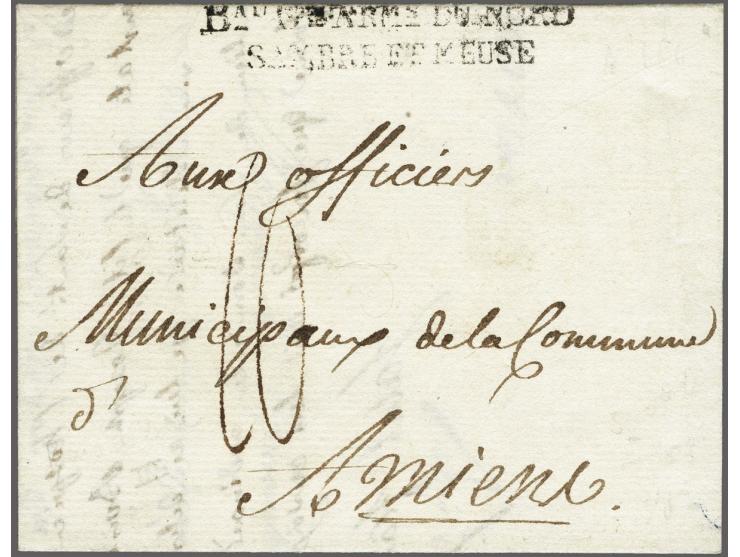 BAU GAL ARME DU NORD
SAMBRE ET MEUSE
Aux officiers
Municipaux de la Commune
d'
Amiens.
10